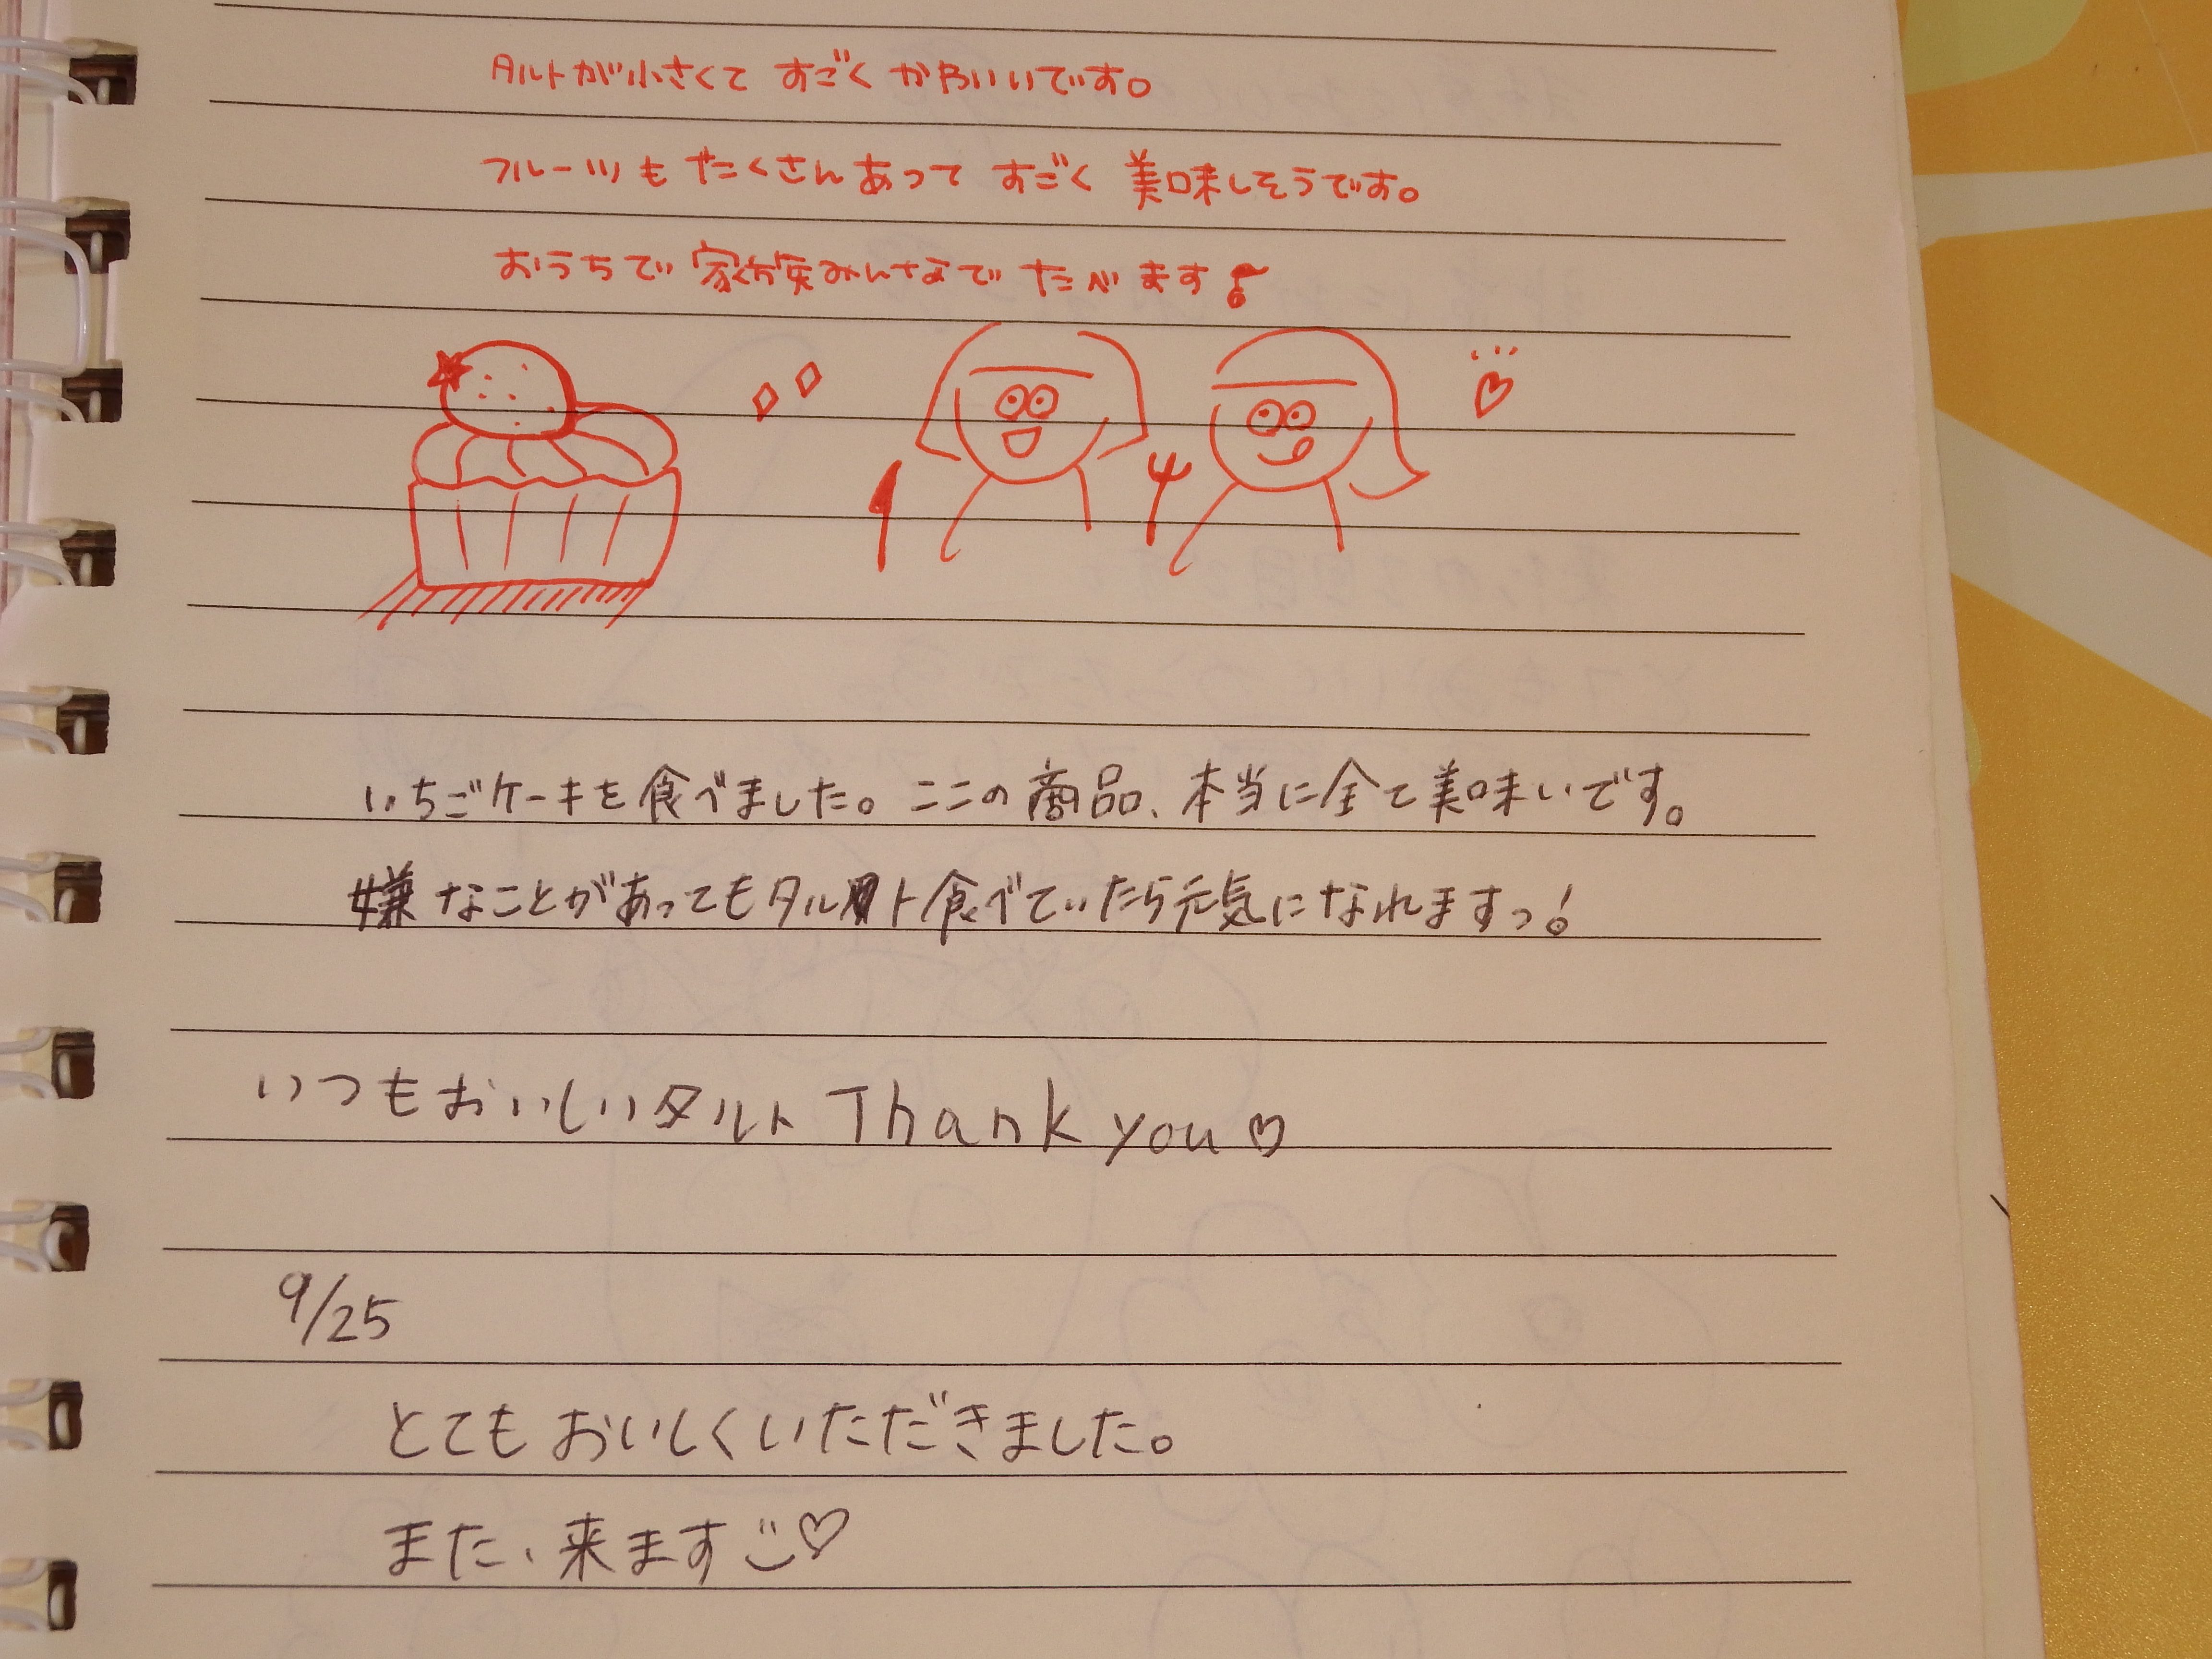 タルトが小さくて すごく かわいいです。
フルーツも たくさんあって すごく 美味しそうです。
おうちで 家族みんなで たべます♪
いちごケーキを食べました。ここの商品、本当に全て美味いです。
嫌なことがあってもタルト食べていたら元気になれますっ!
いつもおいしいタルト Thank you♡
9/25
とてもおいしくいただきました。
また、来ます ♡